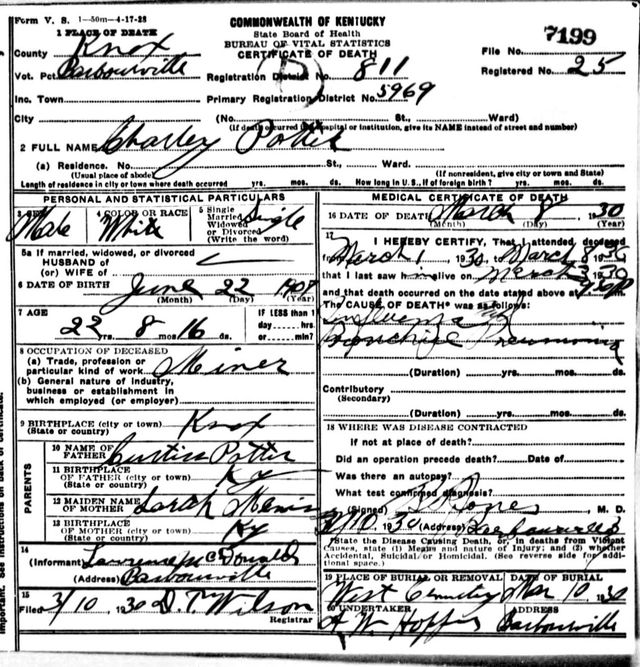 Form V. S. 1—50m—4-17-28
COMMONWEALTH OF KENTUCKY
State Board of Health
BUREAU OF VITAL STATISTICS
CERTIFICATE OF DEATH
1 PLACE OF DEATH
County Knox
Vot. Pct Barbourville
Inc. Town
City
File No. 7199
Registered No. 25
Registration District No. 811
Primary Registration District No. 5969
(No. St., Ward)
(If death occurred in hospital or institution, give its NAME instead of street and number)
2 FULL NAME Charley Potter
(a) Residence. No. St., Ward.
(Usual place of abode) (If nonresident, give city or town and State)
Length of residence in city or town where death occurred yrs. mos. ds. How long in U. S., if of foreign birth? yrs. mos. ds.
PERSONAL AND STATISTICAL PARTICULARS
3 SEX Male
4 COLOR OR RACE White
5 Single Married Widowed or Divorced (Write the word) Single
5a If married, widowed, or divorced
HUSBAND of
(or) WIFE of
6 DATE OF BIRTH June 22
(Month) (Day) (Year)
7 AGE 22 yrs. 8 mos. 16 ds.
IF LESS than 1 day, hrs. or min?
8 OCCUPATION OF DECEASED
(a) Trade, profession or particular kind of work Miner
(b) General nature of industry, business or establishment in which employed (or employer)
9 BIRTHPLACE (city or town) Knox
(State or country)
PARENTS
10 NAME OF FATHER Curtiss Potter
11 BIRTHPLACE OF FATHER (city or town) Ky
(State or country)
12 MAIDEN NAME OF MOTHER Sarah
13 BIRTHPLACE OF MOTHER (city or town) Ky
(State or country)
14
(Informant) Lawrence McDonald
(Address) Barbourville
15
Filed 3/10 1930 D. M Wilson
Registrar
MEDICAL CERTIFICATE OF DEATH
16 DATE OF DEATH March 8 1930
(Month) (Day) (Year)
17
I HEREBY CERTIFY, That I attended deceased
from March 1 1930, to March 8 1930
that I last saw him alive on March 1930
and that death occurred on the date stated above at
The CAUSE OF DEATH* was as follows:
Influenza
Pneumonia
(Duration) yrs. mos. ds.
Contributory
(Secondary)
(Duration) yrs. mos. ds.
18 WHERE WAS DISEASE CONTRACTED
If not at place of death?
Did an operation precede death? Date of
Was there an autopsy?
What test confirmed diagnosis?
(Signed) M. D.
3/10 1930 (Address)
*State the Disease Causing Death, or, in deaths from Violent Causes, state (1) Means and nature of Injury; and (2) whether Accidental, Suicidal or Homicidal. (See reverse side for additional space.)
19 PLACE OF BURIAL OR REMOVAL West Cemetery
DATE OF BURIAL Mar 10 1930
20 UNDERTAKER A W Hopper
ADDRESS Barbourville